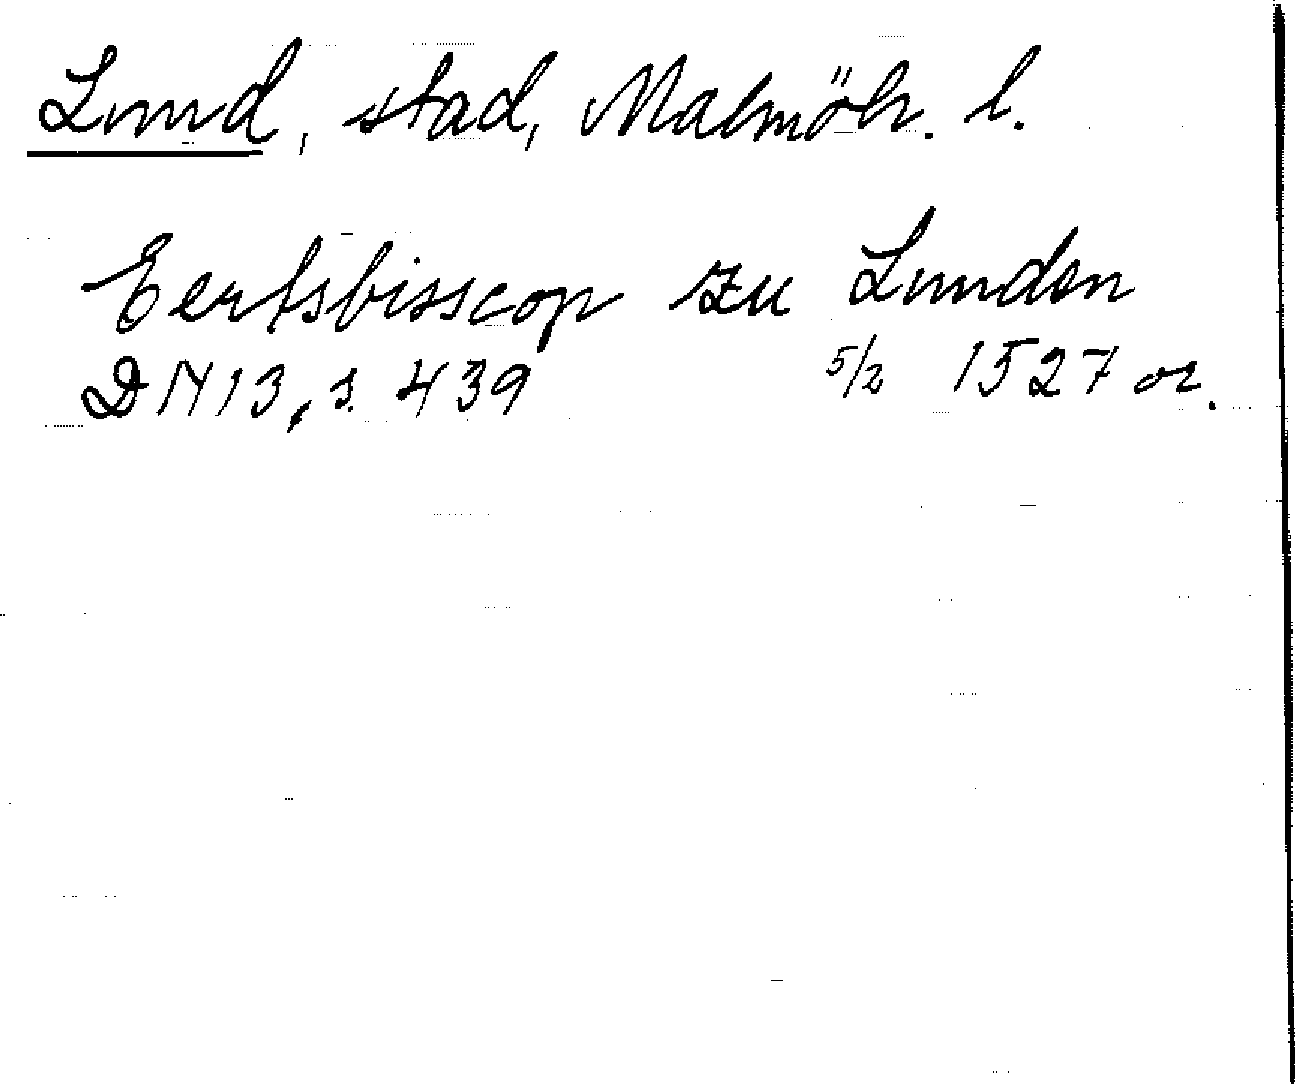 Lund, stad, Malmöh. l.
Eertsbisscop zu Lunden
DN 13, s. 439 5/2 1527 or.